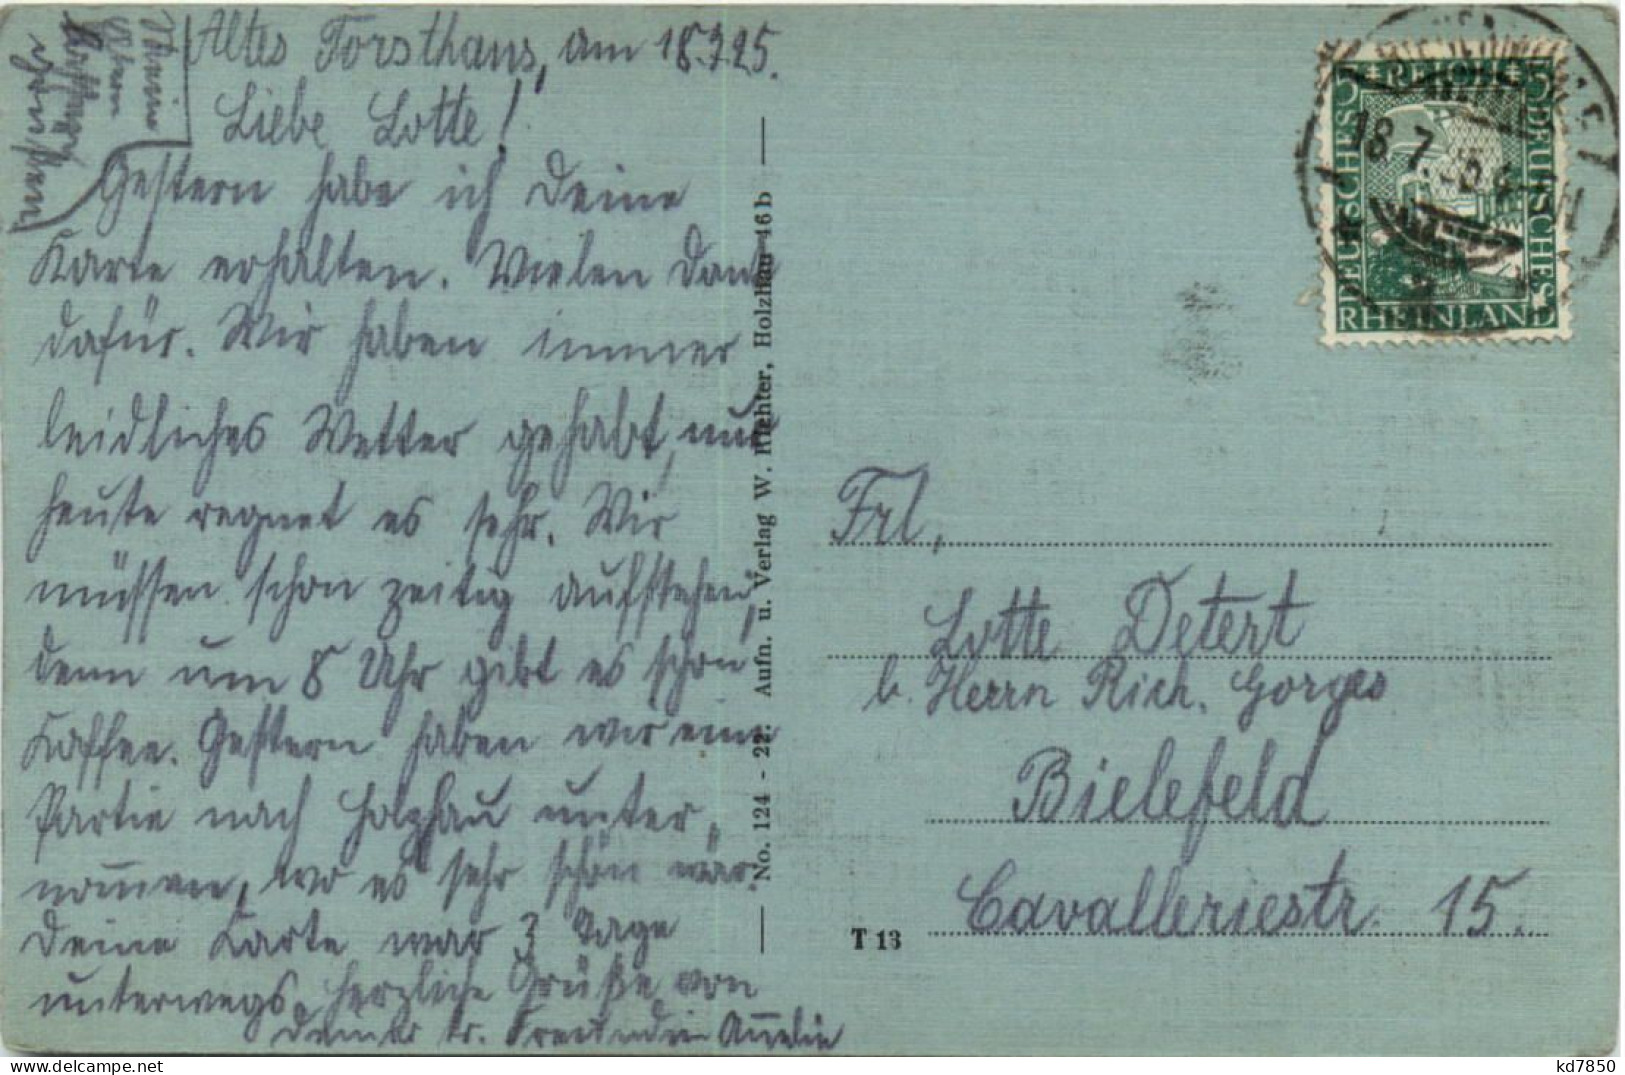 Altes Forsthaus, am 18.7.25.
Liebe Lotte!
Gestern habe ich Deine
Karte erhalten. Vielen Dank
dafür. Wir haben immer
leidliches Wetter gehabt, nur
heute regnet es sehr. Wir
müssen schon zeitig aufstehen,
denn um 8 Uhr gibt es schon
Kaffee. Gestern haben wir eine
Partie nach Holzhau unter„
nommen, wo es sehr schön war.
Deine Karte war 3 Tage
unterwegs. Herzliche Grüße von
Deiner tr. Freundin Amelie
Meine
Eltern
No. 124 - 22: Aufn. u. Verlag W. Richter, Holzhau 46b
T 13
5 REICH 5
DEUTSCHES
DEUTSCHES
RHEINLAND
18.7.
Frl,
Lotte Detert
b. Herrn Rich. Gorges
Bielefeld
Cavalleriestr. 15.
kd7850